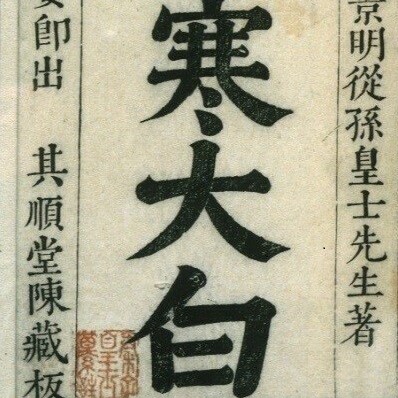 景明從孫皇士先生著
寒大白
即出 其順堂陳藏板